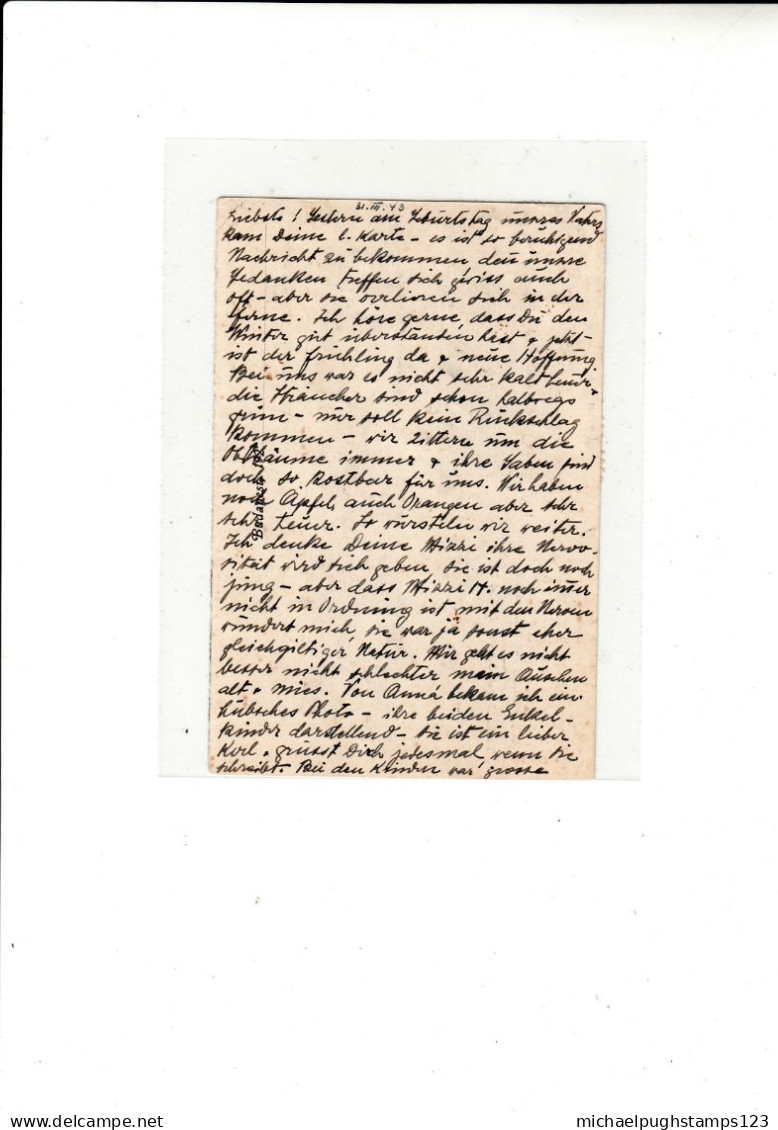 31.III.43
Liebste! Gestern am Geburtstag unsres Vaters
kam Deine l. Karte - es ist so beruhigend
Nachricht zu bekommen den unsre
Gedanken treffen sich gewiss auch
oft - aber sie verlieren sich in der
Ferne. Ich höre gerne dass Du den
Winter gut überstanden hast & jetzt
ist der Frühling da & neue Hoffnung.
Bei uns war es nicht sehr kalt heuer,
die Sträucher sind schon halbwegs
grün - nur soll kein Rückschlag
kommen - wir zittern um die
Obstbäume immer & ihre Gaben sind
doch so kostbar für uns. Wir haben
noch Äpfel, auch Orangen aber sehr
sehr teuer. So wursteln wir weiter.
Ich denke Deine Mizzi ihre Nervo-
sität wird sich geben sie ist doch noch
jung - aber dass Mizzi H. noch immer
nicht in Ordnung ist mit den Nerven
wundert mich, sie war ja sonst eher
gleichgiltiger Natur. Mir geht es nicht
besser nicht schlechter mein Aussehen
alt & mies. Von Anna bekam ich ein
hübsches Photo - ihre beiden Enkel-
kinder darstellend - sie ist ein lieber
Kerl & grüsst Dich jedesmal wenn sie
schreibt. Bei den Kindern war grosse
Budapest
michaelpughstamps123